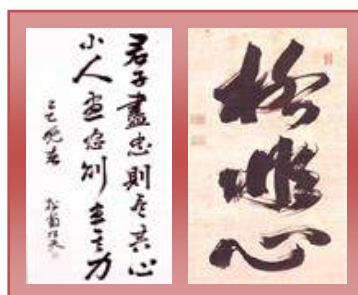 君子盡忠則盡其心
小人盡忠則盡其力
格非心